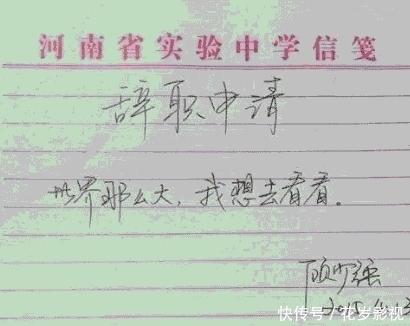 河南省实验中学信笺
辞职申请
世界那么大，我想去看看。
顾少强
2015.4.13
快传号/花岁影视